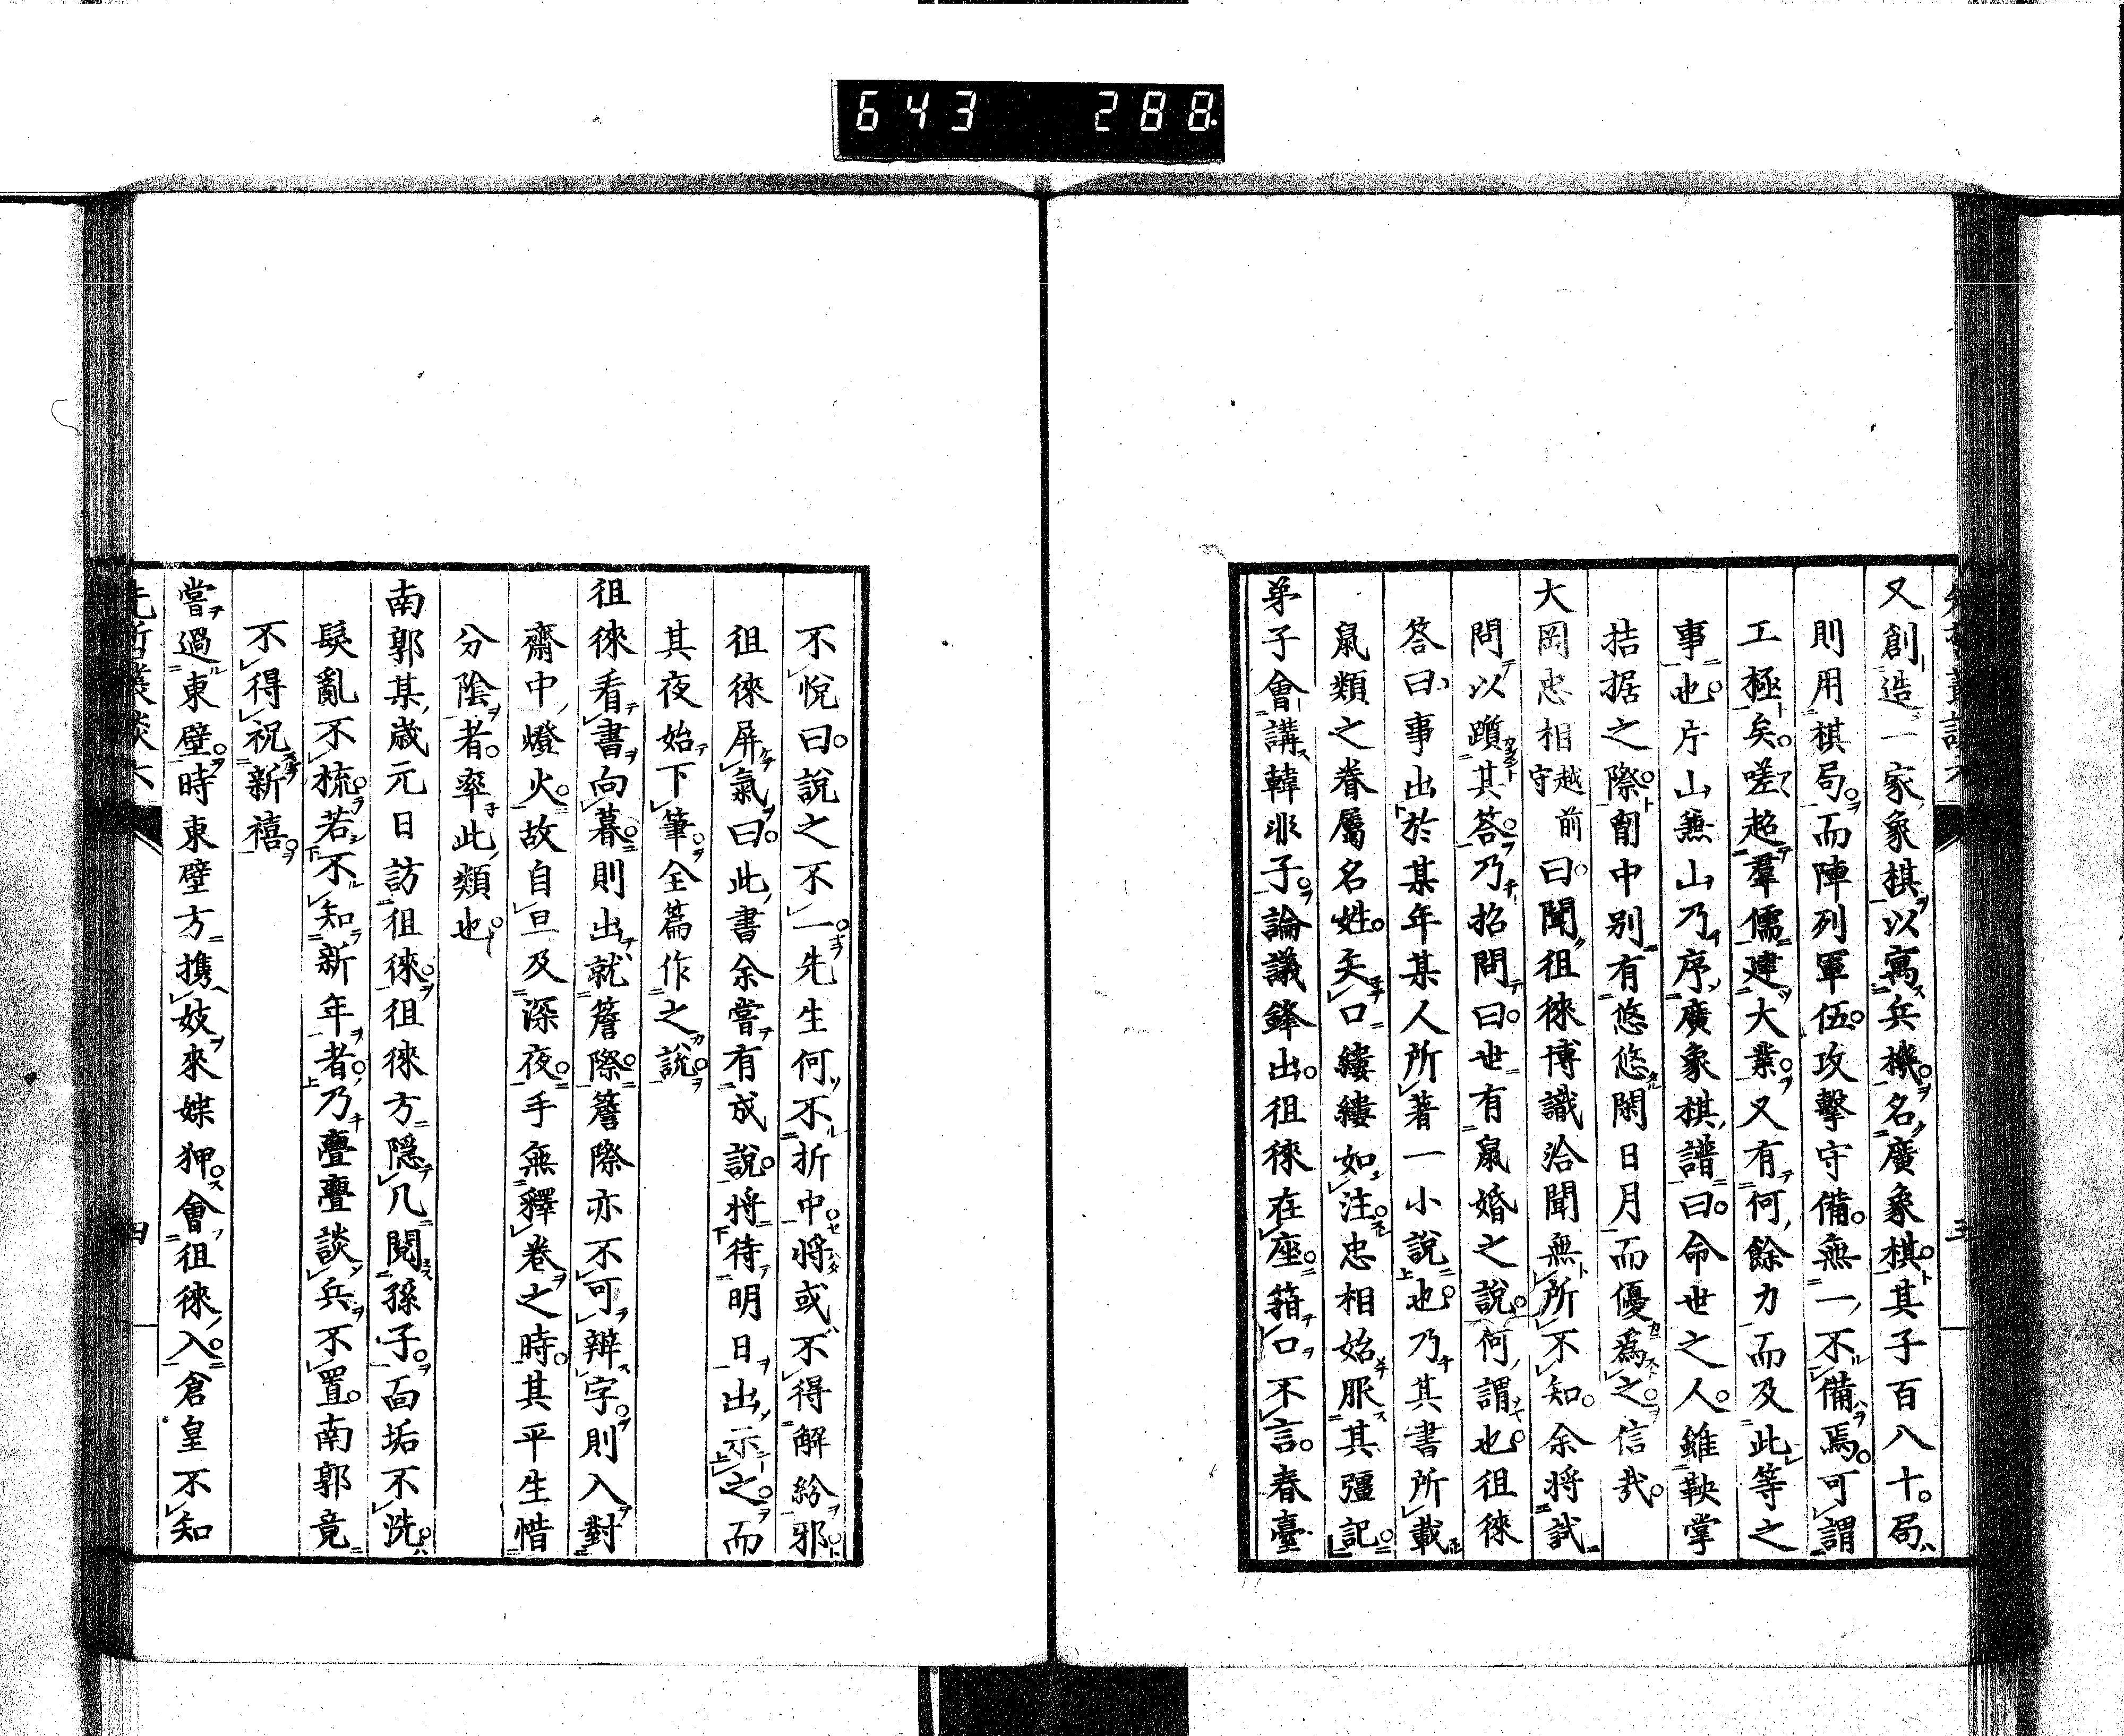 643 288
又創造一家象棋以寓兵機名廣象棋其子百八十局
則用棋局而陣列軍伍攻擊守備無一不備焉可謂
工極矣嗟超羣儒建大業又有何餘力而及此等之
事也片山兼山乃序廣象棋譜曰命世之人雖鞅掌
拮据之際胷中別有悠悠閑日月而優爲之信哉
大岡忠相越前守曰聞徂徠博識洽聞無所不知余將試
問以躓其答乃招問曰世有鼠婚之說何謂也徂徠
答曰事出於某年某人所著一小說也乃其書所載
鼠類之眷屬名姓矣口縷縷如注忠相始服其彊記
弟子會講韓非子論議鋒出徂徠在座箝口不言春臺
不悅曰說之不一先生何不折中將或不得解紛邪
徂徠屏氣曰此書余嘗有成說將待明日出示之而
其夜始下筆全篇作之說
徂徠看書向暮則出就簷際簷際亦不可辨字則入對
齋中燈火故自旦及深夜手無釋卷之時其平生惜
分陰者率此類也
南郭某歲元日訪徂徠徂徠方隱几閱孫子面垢不洗
髮亂不梳若不知新年者乃亹亹談兵不置南郭竟
不得祝新禧
嘗過東壁時東壁方携妓來媟狎會徂徠入倉皇不知
先哲叢談六